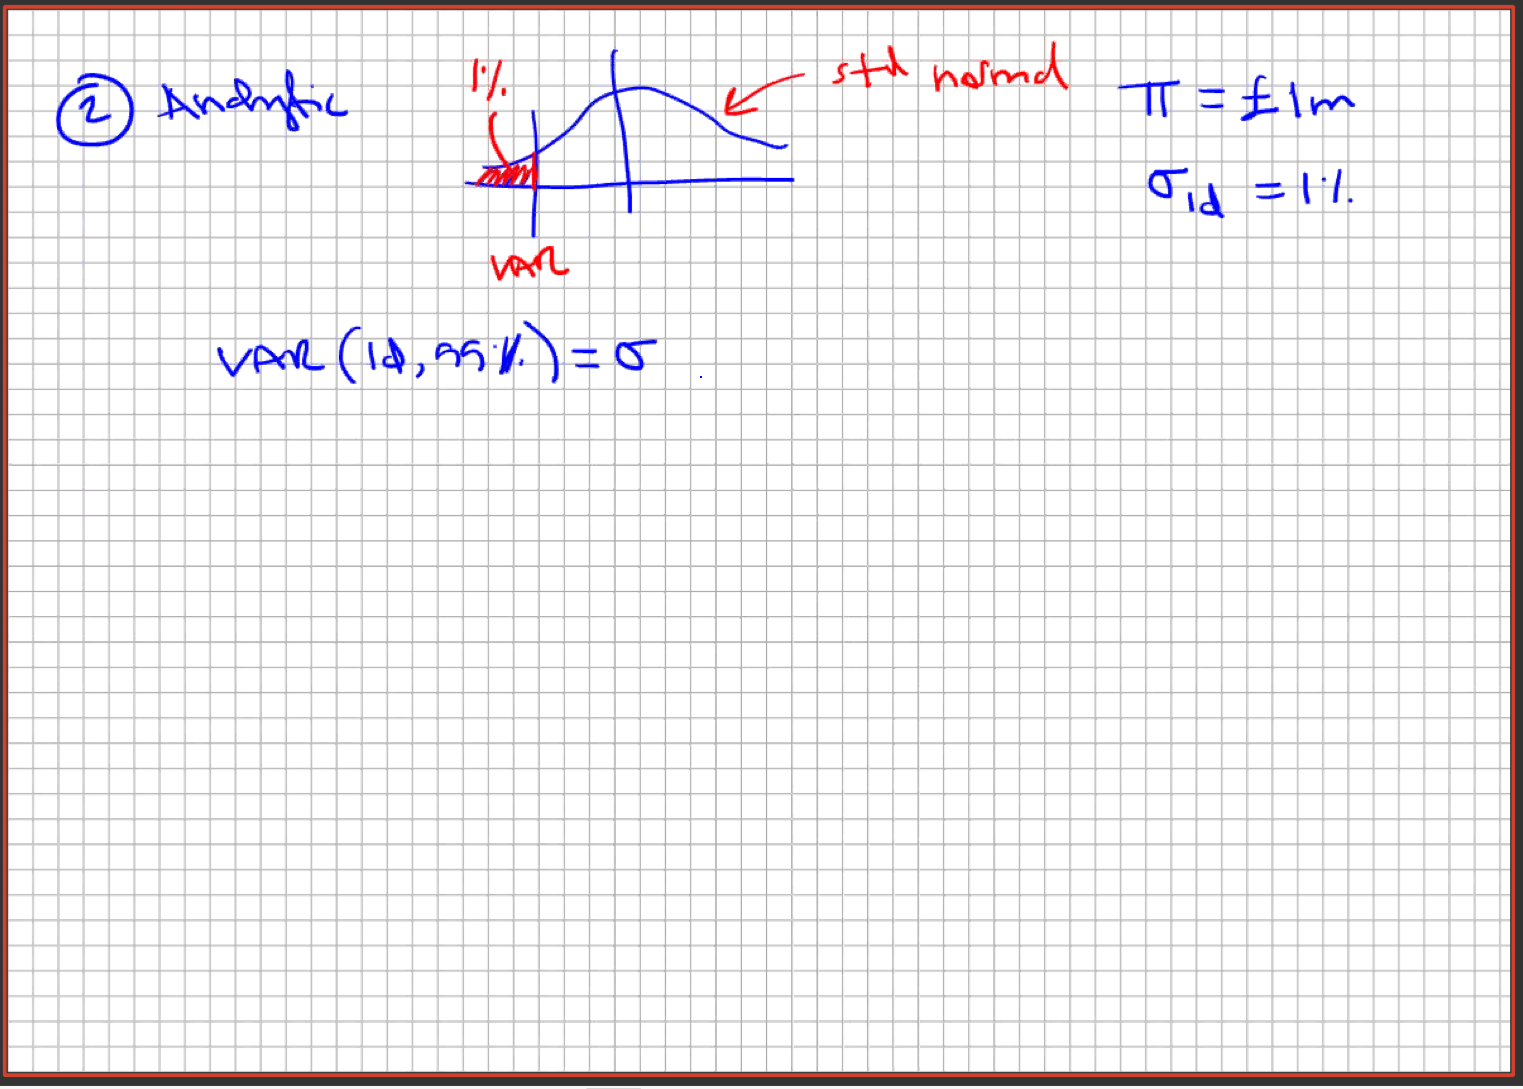 ② Analytic
1%
std normal
π = £1m
σ1d = 1%
VAR
VAR (1d, 99%) = σ